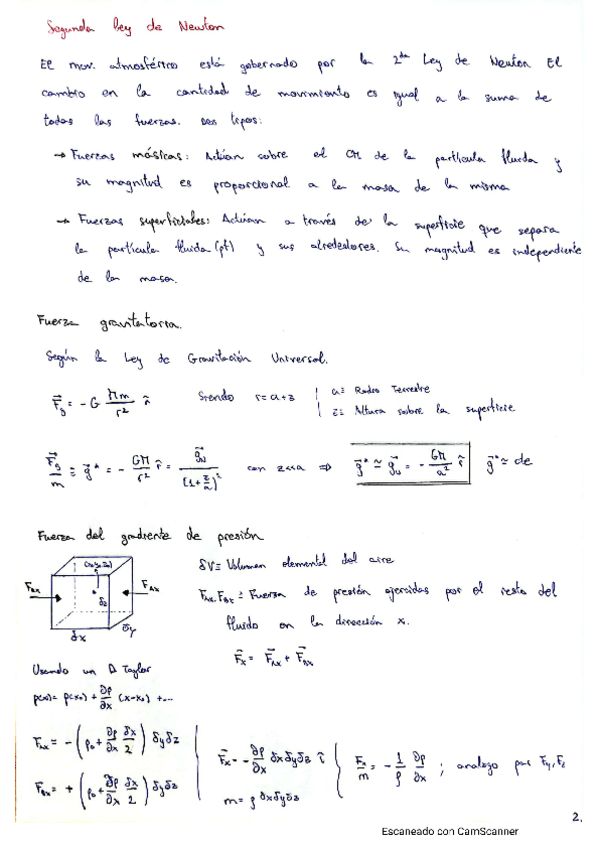 Segunda Ley de Newton
El mov. atmosférico está gobernado por la 2da Ley de Newton El
cambio en la cantidad de movimiento es igual a la suma de
todas las fuerzas. Dos tipos:
→ Fuerzas másicas: Actúan sobre el CM de la partícula fluida y
su magnitud es proporcional a la masa de la misma
→ Fuerzas superficiales: Actúan a través de la superficie que separa
la partícula fluida (pf) y sus alrededores. Su magnitud es independiente
de la masa.
Fuerza gravitatoria.
Según la Ley de Gravitación Universal.
F⃗g = - G Mm/r² r̂ Siendo r = a+z | a ≡ Radio Terrestre
| z ≡ Altura sobre la superficie
F⃗g/m ≡ g⃗* = - GM/r² r̂ = g⃗₀/(1+z/a)² con z<<a ⇒ g⃗* ≃ g⃗₀ = - GM/a² r̂ g⃗* ≃ cte
Fuerza del gradiente de presión
(x₀,y₀,z₀)
δV ≡ Volumen elemental del aire
F_Ax, F_Bx ≡ Fuerza de presión ejercidas por el resto del
fluido en la dirección x.
F_Bx F_Ax
δz
δx δy
F⃗x = F⃗_Ax + F⃗_Bx
Usando un D Taylor
p(x) = p(x₀) + ∂p/∂x (x-x₀) + ...
F_Ax = - (p₀ + ∂p/∂x δx/2) δyδz
F_Bx = + (p₀ + ∂p/∂x δx/2) δyδz
F⃗x = - ∂p/∂x δxδyδz î
m = ρ δxδyδz
Fx/m = - 1/ρ ∂p/∂x ; analogo par Fy, Fz
2.
Escaneado con CamScanner